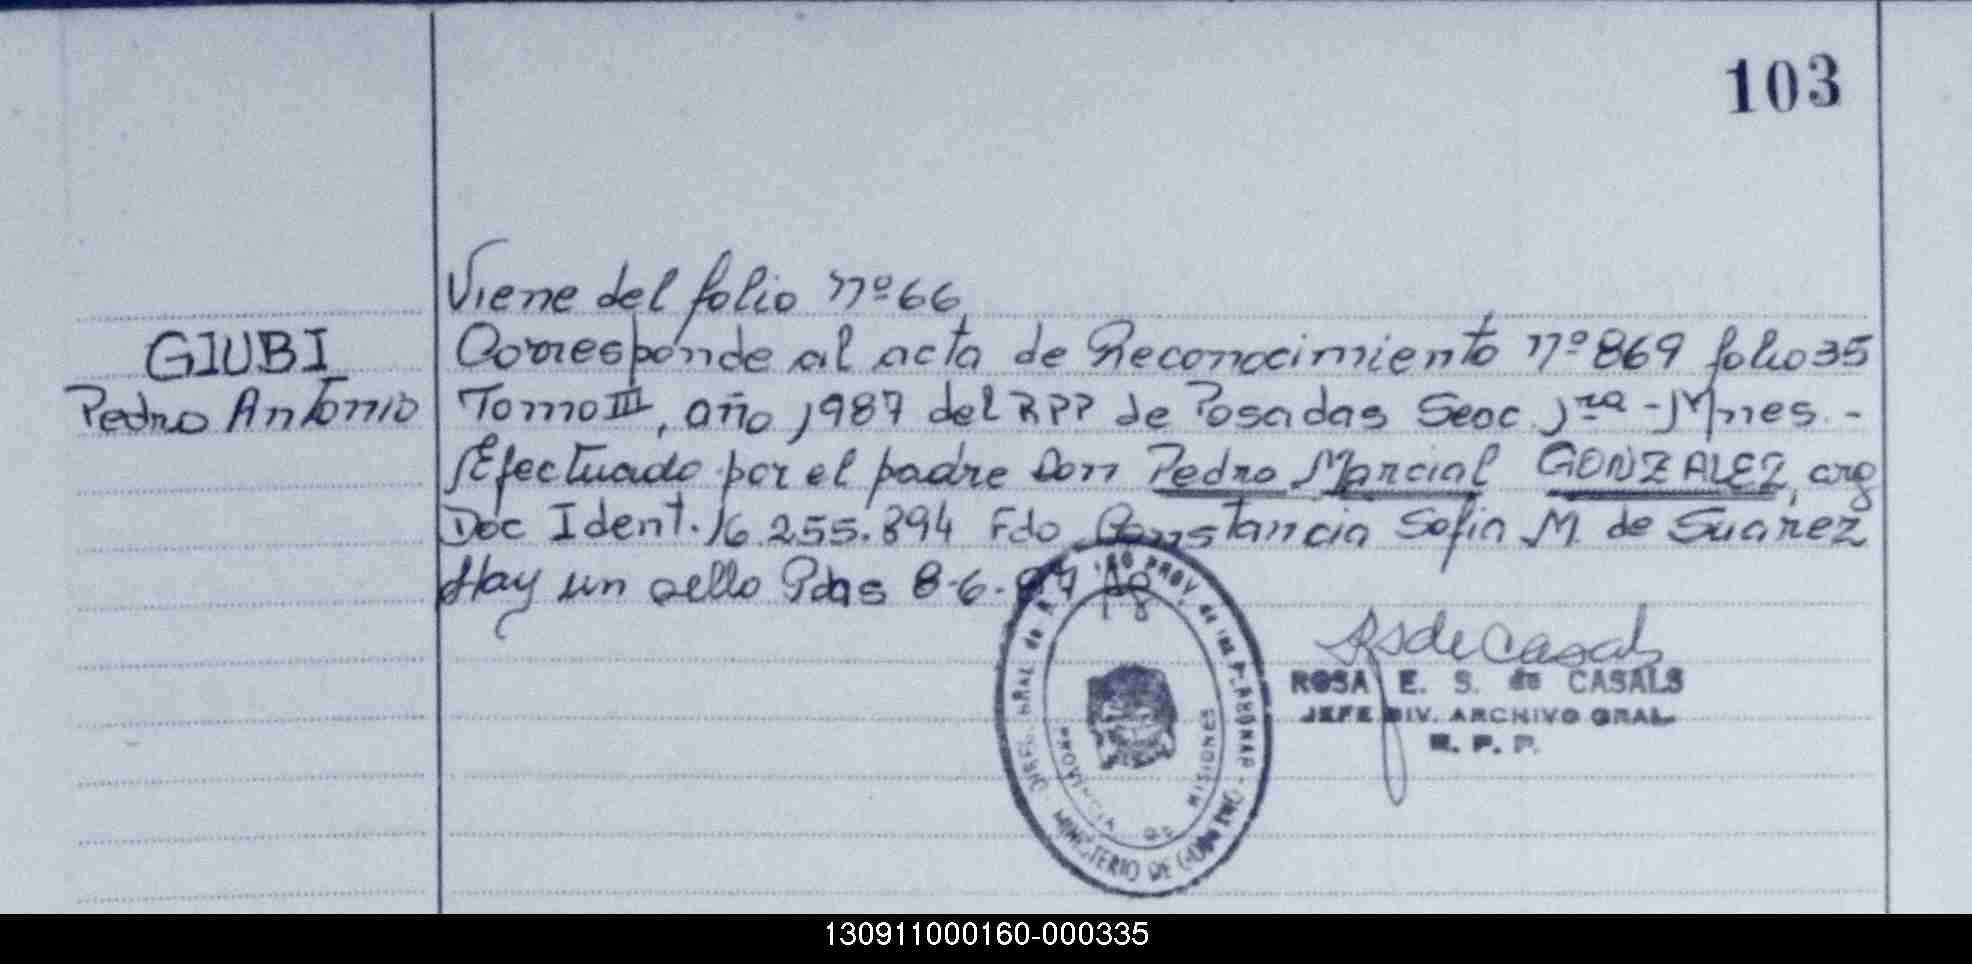 103
Viene del folio nº 66
GIUBI
Pedro Antonio
Corresponde al acta de Reconocimiento nº 869 folio 35
Tomo III, año 1987 del RPP de Posadas Secc 1ra - Mnes. -
Efectuado por el padre Don Pedro Marcial GONZALEZ, arg
Doc Ident. 16.255.894 Fdo Constancia Sofia M. de Suarez
Hay un sello Pdas 8-6-87
PROV. de las P
MINISTERIO DE
PROVINCIA DE MISIONES
RSdeCasals
ROSA E. S. de CASALS
JEFE DIV. ARCHIVO GRAL.
R. P. P.
130911000160-000335